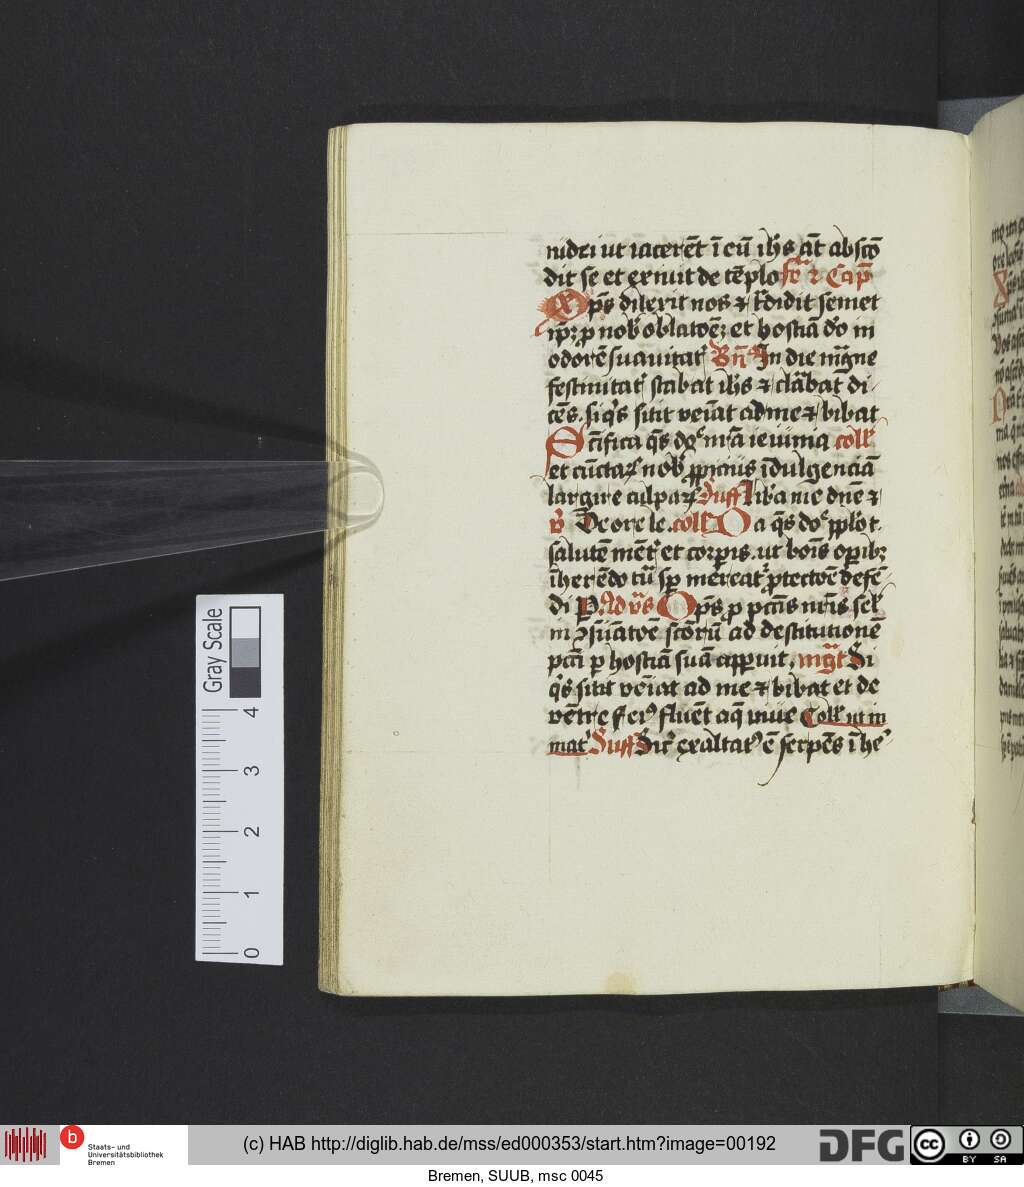 iudei ut iacerēt ī eū ihs āt abscō
dit se et exiuit de tēplo
dilexit nos ⁊ tdidit semet
ip̄ꝫ p nob oblatōeꝫ et hostiā dō in
odorē suauitat Bn̄ In die mgne
festiuitat stabat ihs ⁊ clābat di
cēs. siqs sitit veīat ad me ⁊ bibat
Scīfica qs ds nrā ieiunia coll
et cūctaꝝ nob ppicius īdulgenciā
largire culpaꝝ Suff libā me dnē ⁊
v̄ De ore le. coll Da qs ds pplo t
salutē mēt et corpis. ut bonis opibꝫ
īherēdo tu sp mereat ptectōe defē
di P Ad vs Ops p pctis nris sel
in ꝯsūatōe sclorū ad destitutionē
pcti p hostiā suā appuit. mgt Si
qs sitit veīat ad me ⁊ bibat et de
vētre eius fluēt aq̄ viue Coll ut in
mat Suff Sic exaltat ē serpēs ī he
Gray Scale
4
3
2
1
0
b
Staats- und
Universitätsbibliothek
Bremen
(c) HAB http://diglib.hab.de/mss/ed000353/start.htm?image=00192
DFG
cc
BY SA
Bremen, SUUB, msc 0045